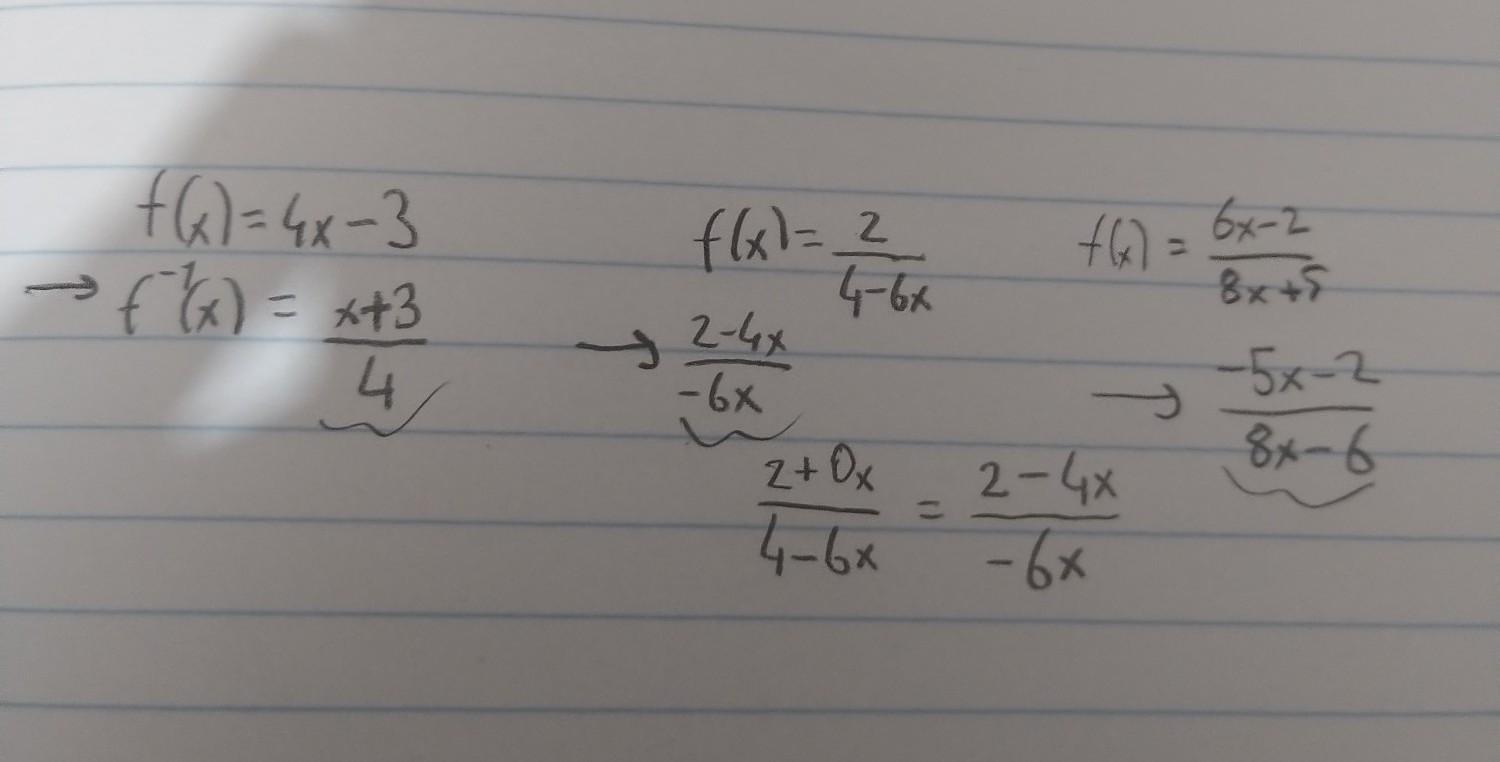 f(x) = 4x - 3
→ f⁻¹(x) = x+3
4
f(x) = 2
4-6x
→ 2-4x
-6x
2+0x = 2-4x
4-6x -6x
f(x) = 6x-2
8x+5
→ -5x-2
8x-6